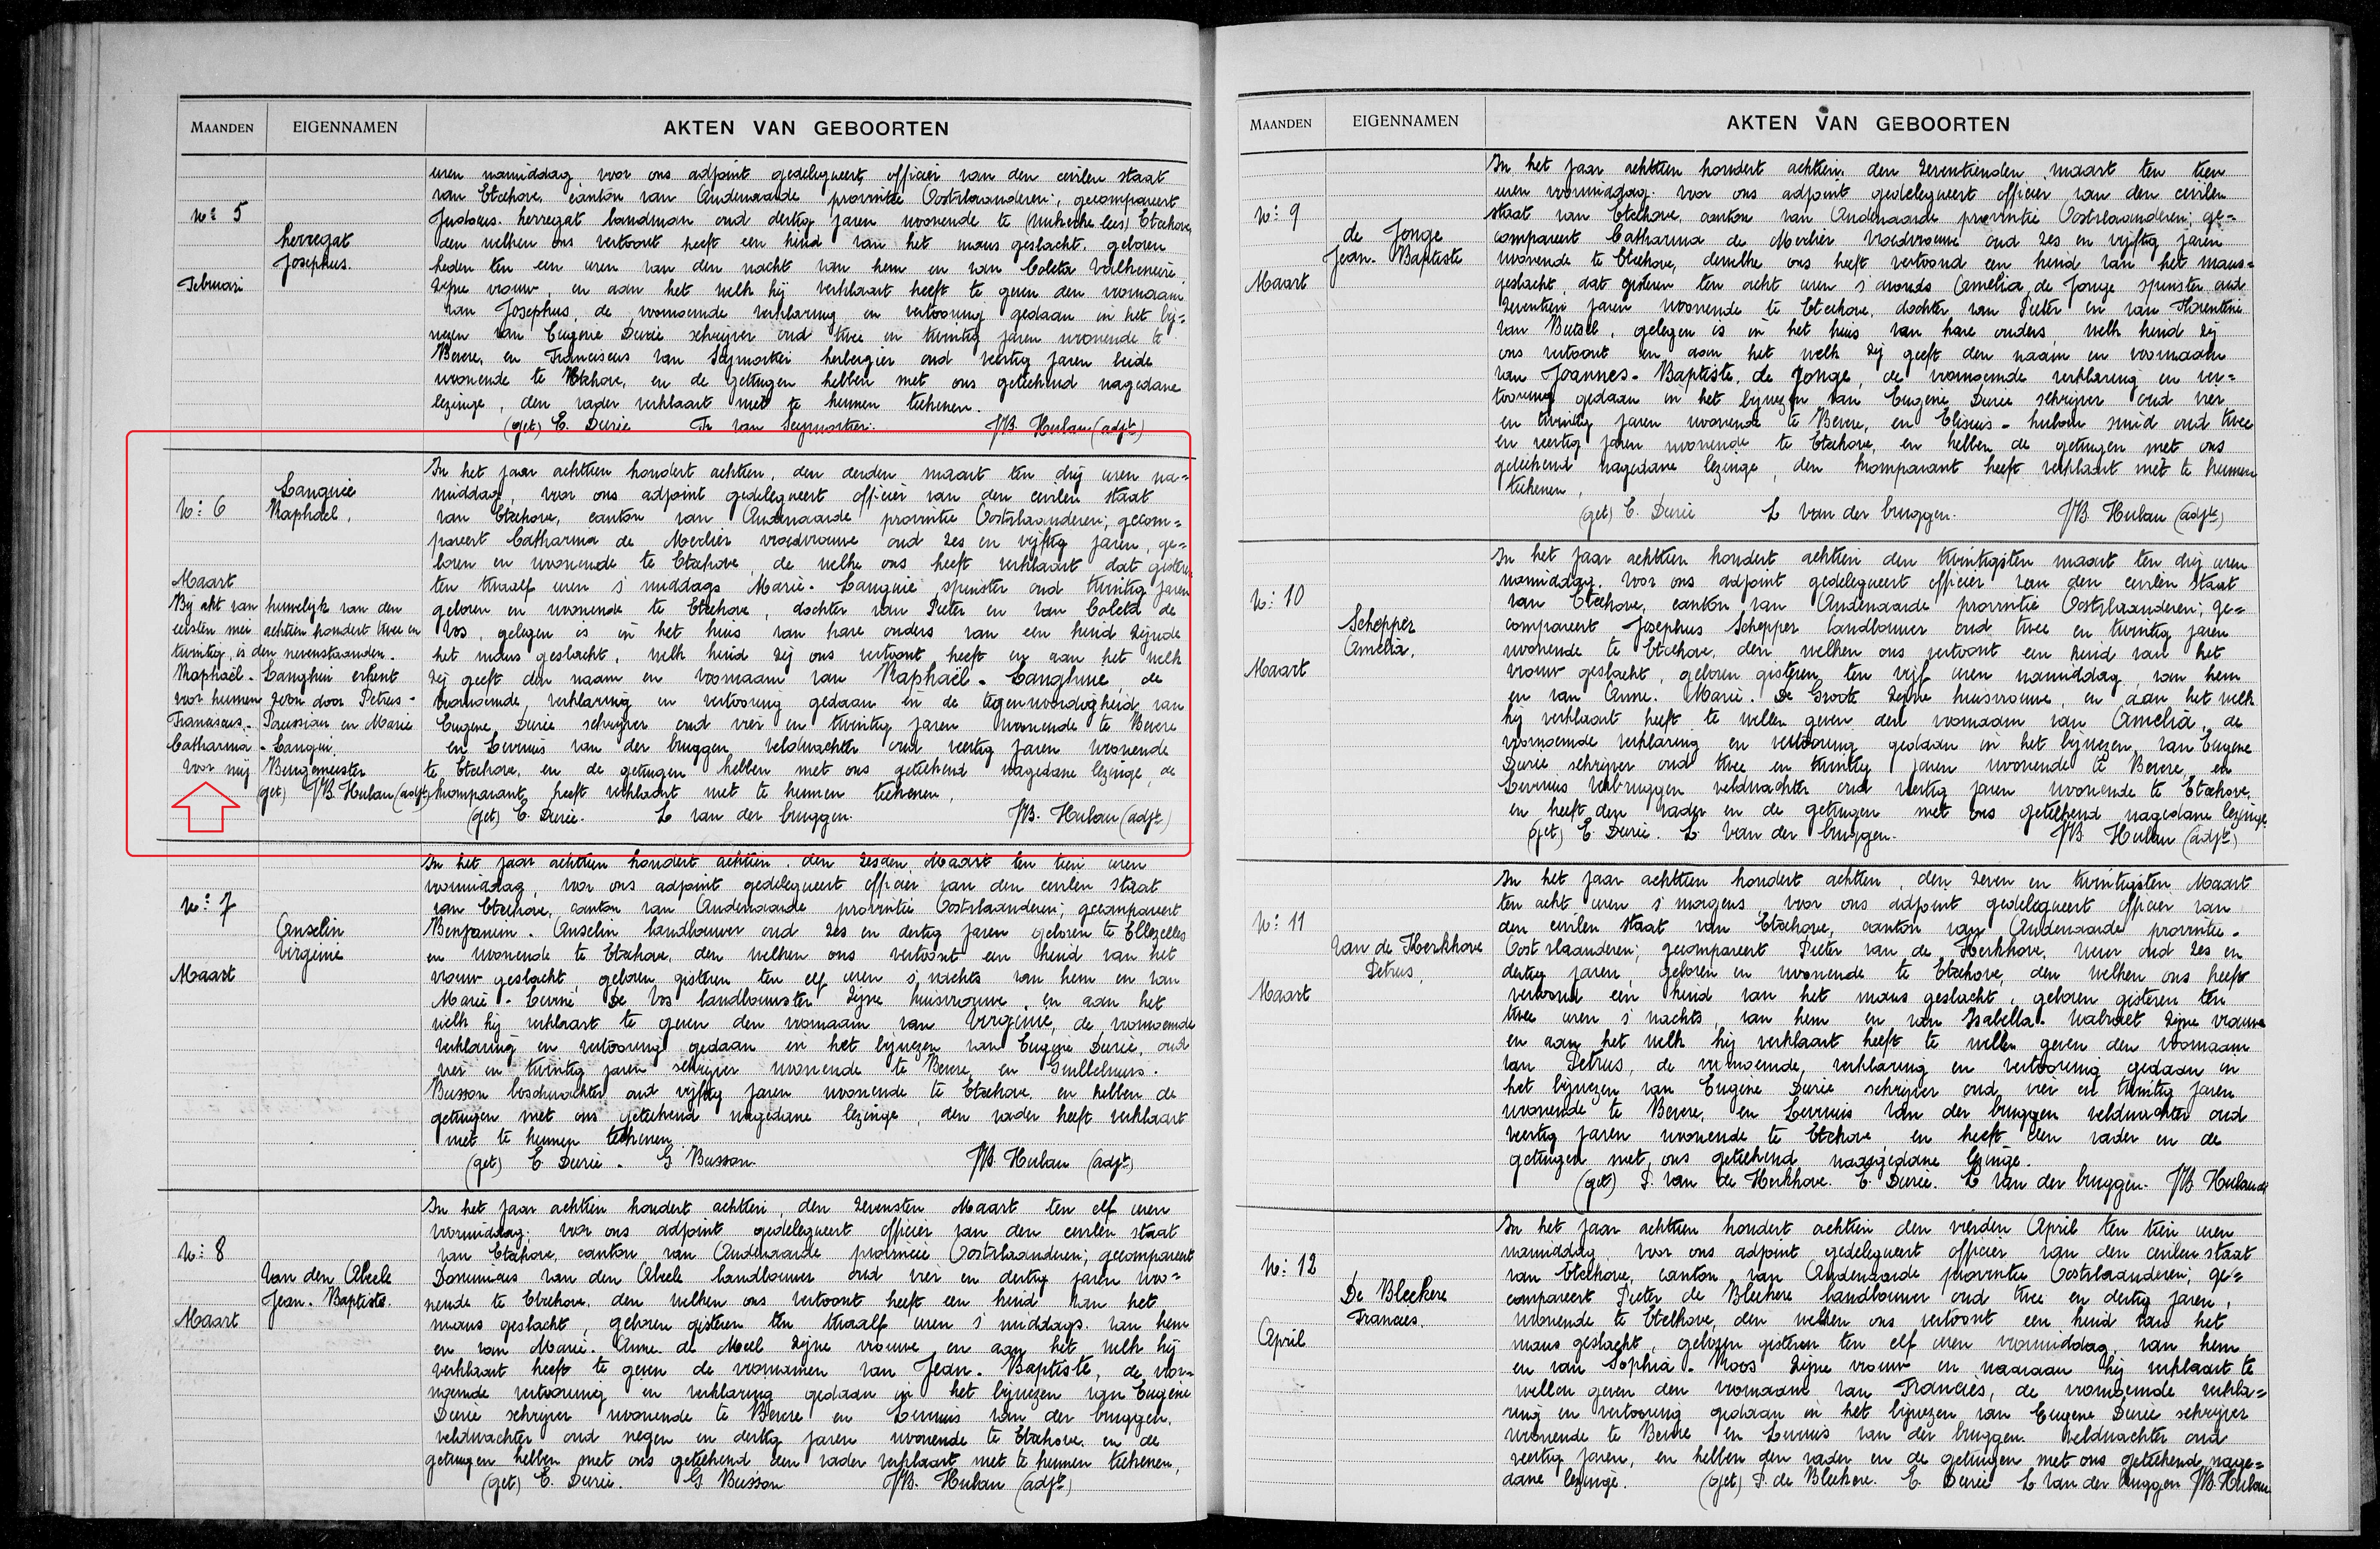 MAANDEN EIGENNAMEN AKTEN VAN GEBOORTEN
uren namiddag voor ons adjoint gedelegueert officier van den civilen staat
van Etichove, canton van Audenaarde provintie Oostvlaanderen, gecompareert
Judocus herregat landman oud dertig jaren woonende te Etichove,
den welken ons vertoont heeft een kind van het mans geslacht, geboren
heden ten een uren van den nacht van hem en van Coleta
zijne vrouw, en aan het welk hij verklaart heeft te geven den voornaam
van Josephus, de voornoemde verklaring en vertooning gedaan in het bij=
wezen van Eugene Durie schrijver oud twee en twintig jaren woonende te
Bevere, en Franciscus van Seymortier herbergier oud veertig jaren beide
woonende te Etichove, en de getuigen hebben met ons geteekend nagedane
lezinge, den vader verklaart niet te kunnen teekenen.
(get) E. Durie Fr van Seymortier. JB. Hulau (adjt)
No: 5
herregat
Josephus.
Februari
In het jaar achttien hondert achttien, den derden maart ten drij uren na=
middag, voor ons adjoint gedelegueert officier van den civilen staat
van Etichove, canton van Audenaarde provintie Oostvlaanderen, gecom=
pareert Catharina de Merlier vroedvrouwe oud zes en vijftig jaren, ge=
boren en woonende te Etichove, de welke ons heeft verklaart dat gisteren
ten twaalf uren s' middags Marie - Languie spinster oud twintig jaren
geboren en woonende te Etichove, dochter van Pieter en van Coleta de
Vos, gelegen is in het huis van hare ouders van een kind zijnde
het mans geslacht, welk kind zij ons vertoont heeft en aan het welk
zij geeft den naam en voornaam van Raphaël - Langhuie, de
voornoemde, verklaring en vertooning gedaan in de tegenwoordigheid van
Eugene Durie schrijver oud vier en twintig jaren woonende te Bevere
en Livinus van der bruggen veldwachter oud veertig jaren woonende
te Etichove, en de getuigen hebben met ons geteekend nagedane lezinge, de
komparant heeft verklaart niet te kunnen teekenen,
(get) E. Durie. L van der bruggen. JB. Hulau (adjt)
No: 6
Languie
Raphaël,
Maart
Bij akt van huwelijk van den
eersten mei achttien hondert twee en
twintig is den nevenstaanden -
Raphaël - Langhui erkent
voor hunnen zoon door Petrus -
Franciscus - en Marie
Catharina - Langui
Voor mij Burgemeester
(get) JB. Hulau (adjt)
In het jaar achttien hondert achttien, den zesden Maart ten tien uren
voormiddag, voor ons adjoint gedelegueert officier van den civilen staat
van Etichove, canton van Audenaarde provintie Oostvlaanderen, gecompareert
Benjamin - Anselin landbouwer oud zes en dertig jaren geboren te Ellezelles
en woonende te Etichove, den welken ons vertoont een kind van het
vrouw geslacht, geboren gisteren ten elf uren s' nachts van hem en van
Marie - De Vos landbouwster zijne huisvrouwe, en aan het
welk hij verklaart te geven den voornaam van Virginie, de voornoemde
verklaring en vertooning gedaan in het bijwezen van Eugene Durie, oud
vier en twintig jaren schrijver woonende te Bevere, en Guillelmus -
Busson boschwachter oud vijftig jaren woonende te Etichove, en hebben de
getuigen met ons geteekend nagedane lezinge, den vader heeft verklaart
niet te kunnen teekenen
(get) E. Durie. G Busson. JB. Hulau (adjt)
No: 7
Anselin
Virginie
Maart
In het jaar achttien hondert achttien, den zevensten Maart ten elf uren
voormiddag, voor ons adjoint gedelegueert officier van den civilen staat
van Etichove, canton van Audenaarde provincie Oostvlaanderen; gecompareert
Dominicus van den Abeele landbouwer oud vier en dertig jaren woo=
nende te Etichove, den welken ons vertoont heeft een kind van het
mans geslacht, geboren gisteren ten twaalf uren s' middags van hem
en van Marie - Anne de Meel zijne vrouwe en aan het welk hij
verklaart heeft te geven de voornamen van Jean - Baptiste, de voor=
noemde vertooning en verklaring gedaan in het bijwezen van Eugene
Durie schrijver woonende te Bevere en Livinus van der bruggen,
veldwachter oud negen en dertig jaren woonende te Etichove, en de
getuigen hebben met ons geteekend den vader verklaart niet te kunnen teekenen,
(get) E. Durie. G Busson JB. Hulau (adjt)
No: 8
Van den Abeele
Jean - Baptiste
Maart
MAANDEN EIGENNAMEN AKTEN VAN GEBOORTEN
In het jaar achttien hondert achttien den zeventienden maart ten tien
uren voormiddag. voor ons adjoint gedelegueert officier van den civilen
staat van Etichove, canton van Audenaarde provintie Oostvlaanderen; ge=
compareert Catharina de Merlier vroedvrouwe oud zes en vijftig jaren
woonende te Etichove, denwelke ons heeft vertoond een kind van het mans=
geslacht, dat gisteren ten acht uren s' avonds Amelia de Jonge spinster oud
zeventien jaren woonende te Etichove, dochter van Pieter en van Florentine
van Butsel, gelegen is in het huis van hare ouders, welk kind zij
ons vertoont en aan het welk zij geeft den naam en voornaam
van Joannes - Baptiste, de Jonge, de voornoemde verklaring en ver=
tooning gedaan in het bijwezen van Eugene Durie schrijver oud vier
en twintig jaren woonende te Bevere, en Eliseus - smid oud twee
en veertig jaren woonende te Etichove, en hebben de getuigen met ons
geteekend nagedane lezinge, den komparant heeft verklaart niet te kunnen
teekenen,
(get) E. Durie L van der bruggen. JB. Hulau (adjt)
No: 9
de Jonge
Jean - Baptiste
Maart
In het jaar achttien hondert achttien den twintigsten maart ten drij uren
namiddag. voor ons adjoint gedelegueert officier van den civilen staat
van Etichove, canton van Audenaarde provintie Oostvlaanderen; ge=
compareert Josephus Schepper landbouwer oud twee en twintig jaren
woonende te Etichove, den welken ons vertoont een kind van het
vrouw geslacht, geboren gisteren ten vijf uren namiddag van hem
en van Anne - Marie - De Groote zijne huisvrouwe, en aan het welk
hij verklaart heeft te willen geven den voornaam van Amelia, de
voornoemde verklaring en vertooning gedaan in het bijwezen van Eugene
Durie schrijver oud twee en twintig jaren woonende te Bevere, en
Livinius Verbruggen veldwachter oud veertig jaren woonende te Etichove,
en heeft den vader en de getuigen met ons geteekend nagedane lezinge
(get) E. Durie. L. Van der bruggen. JB Hulau (adjt)
No: 10
Schepper
Amelia,
Maart
In het jaar achttien hondert achttien, den zeven en twintigsten Maart
ten acht uren s' morgens voor ons adjoint gedelegueert officier van
den civilen staat van Etichove, canton van Audenaarde provintie -
Oostvlaanderen; gecompareert Pieter van de Kerkhove, wever oud zes en
dertig jaren, geboren en woonende te Etichove, den welken ons heeft
vertoond een kind van het mans geslacht, geboren gisteren ten
twee uren s' nachts, van hem en van Isabella - zijne vrouwe
en aan het welk hij verklaart heeft te willen geven den voornaam
van Petrus, de voornoemde, verklaring en vertooning gedaan in
het bijwezen van Eugene Durie schrijver oud vier en twintig jaren
woonende te Bevere, en Livinis Van der bruggen veldwachter oud
veertig jaren woonende te Etichove, en heeft den vader en de
getuigen met ons geteekend naargedane lezinge.
(get) P. Van de Kerkhove. E. Durie. L van der bruggen. JB Hulau
No: 11
Van de Kerkhove
Petrus,
Maart
In het jaar achttien hondert achttien den vierden April ten tien uren
namiddag voor ons adjoint gedelegueert officier van den civilen staat
van Etichove, canton van Audenaarde provintie Oostvlaanderen, ge=
compareert Pieter de Bleekere landbouwer oud twee en dertig jaren,
woonende te Etichove, den welken ons vertoont een kind van het
mans geslacht, geboren gisteren ten elf uren voormiddag, van hem
en van Sophia - Roos zijne vrouw en waaraan hij verklaart te
willen geven den voornaam van Francies, de voornoemde verkla=
ring en vertooning gedaan in het bijwezen van Eugene Durie schrijver
woonende te Bevere en Livinis van der bruggen veldwachter oud
veertig jaren, en hebben den vader en de getuigen met ons geteekend nage=
dane lezinge. (get) P. de Bleekere. E. Durie L van der bruggen JB. Hulau
No: 12
De Bleekere
Francies.
April